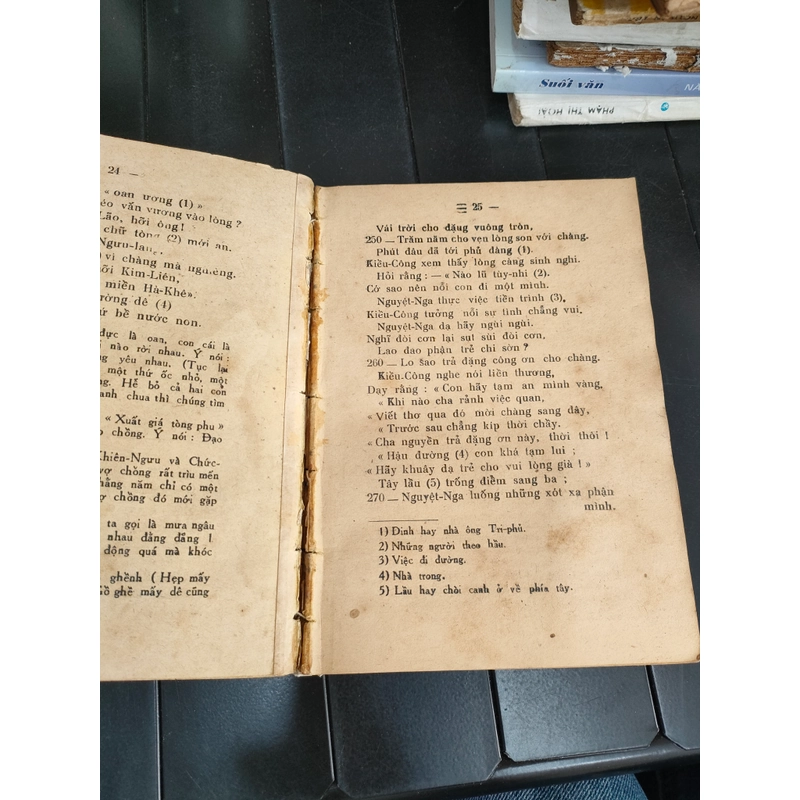 Suối văn
NA
PHẠM THỊ HOÀI
24 —
« oan ương (1) »
éo vấn vương vào lòng ?
Lão, hỡi ông !
chữ tòng (2) mới an.
Ngưu-lan,
vì chàng mà
ỡi Kim-Liên,
miền Hà-Khê».
ường dê (4)
ử bề nước non.
đực là oan, con cái là
nào rời nhau. Ý nói :
g yêu nhau. (Tục lại
một thứ ốc nhỏ, một
ng. Hễ bỏ cả hai con
anh chua thì chúng tìm
« Xuất giá tòng phu »
o chồng. Ý nói : Đạo
Khiên-Ngưu và Chức-
vợ chồng rất trìu mến
hằng năm chỉ có một
ợ chồng đó mới gặp
ta gọi là mưa ngâu
nhau đằng đẳng 1
động quá mà khóc
ghềnh ( Hẹp mấy
ồ ghề mấy dê cũng
25 —
Vái trời cho đặng vuông tròn,
250 — Trăm năm cho vẹn lòng son với chàng.
Phút đâu đã tới phủ đàng (1).
Kiều-Công xem thấy lòng càng sinh nghi.
Hỏi rằng : — « Nào lũ tùy-nhi (2).
Cớ sao nên nỗi con đi một mình.
Nguyệt-Nga thực việc tiền trình (3),
Kiều-Công tưởng nỗi sự tình chẳng vui.
Nguyệt-Nga dạ hãy ngùi ngùi.
Nghĩ đòi cơn lại sụt sùi đòi cơn.
Lao đao phận trẻ chi sờn ?
260 — Lo sao trả đặng công ơn cho chàng.
Kiều-Công nghe nói liền thương,
Dạy rằng : « Con hãy tạm an mình vàng,
« Khi nào cha rảnh việc quan,
« Viết thơ qua đó mời chàng sang đây,
« Trước sau chẳng kịp thời chầy.
« Cha nguyền trả đặng ơn này, thời thôi !
« Hậu đường (4) con khá tạm lui ;
« Hãy khuây dạ trẻ cho vui lòng già ! »
Tây lầu (5) trống điểm sang ba ;
270 — Nguyệt-Nga luống những xót xa phận
mình.
1) Đinh hay nhà ông Tri-phủ.
2) Những người theo hầu.
3) Việc đi đường.
4) Nhà trong.
5) Lầu hay chòi canh ở về phía tây.